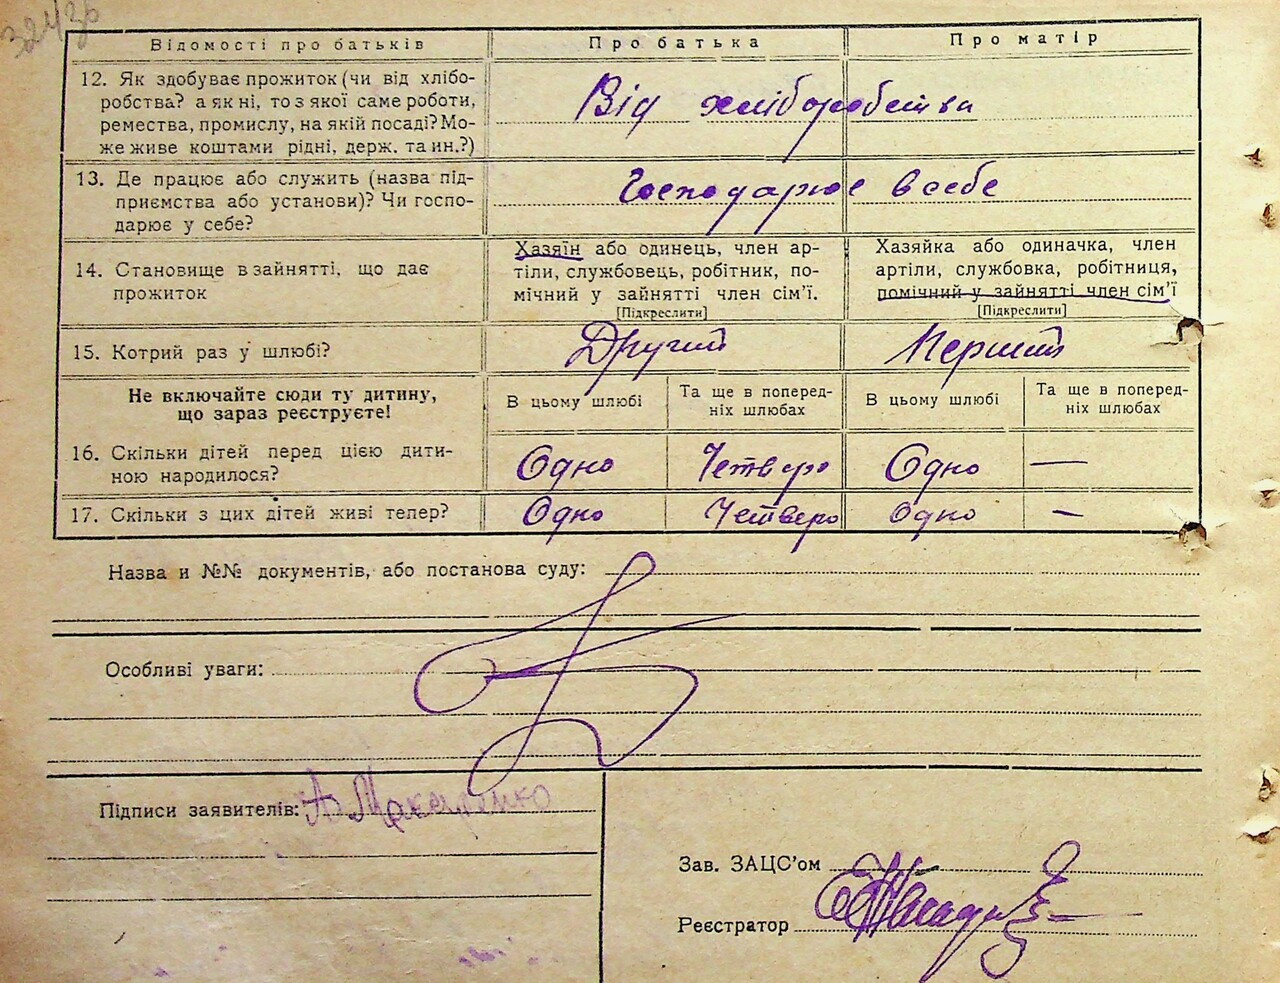 32436
Відомості про батьків
Про батька
Про матір
12. Як здобуває прожиток (чи від хлібо-
робства? а як ні, то з якої саме роботи,
ремества, промислу, на якій посаді? Мо-
же живе коштами рідні, держ. та ин.?)
Від хліборобства
13. Де працює або служить (назва під-
приємства або установи)? Чи госпо-
дарює у себе?
Господарює в себе
14. Становище в зайнятті, що дає
прожиток
Хазяїн або одинець, член ар-
тіли, службовець, робітник, по-
мічний у зайнятті член сім'ї.
[Підкреслити]
Хазяйка або одиначка, член
артіли, службовка, робітниця,
помічний у зайнятті член сім'ї
[Підкреслити]
15. Котрий раз у шлюбі?
Другий
Перший
Не включайте сюди ту дитину,
що зараз реєструєте!
В цьому шлюбі
Та ще в поперед-
ніх шлюбах
В цьому шлюбі
Та ще в поперед-
ніх шлюбах
16. Скільки дітей перед цією дити-
ною народилося?
Одно
Четверо
Одно
—
17. Скільки з цих дітей живі тепер?
Одно
Четверо
Одно
—
Назва и №№ документів, або постанова суду:
Особливі уваги:
Підписи заявителів: А Макаренко
Зав. ЗАЦС'ом
Реєстратор